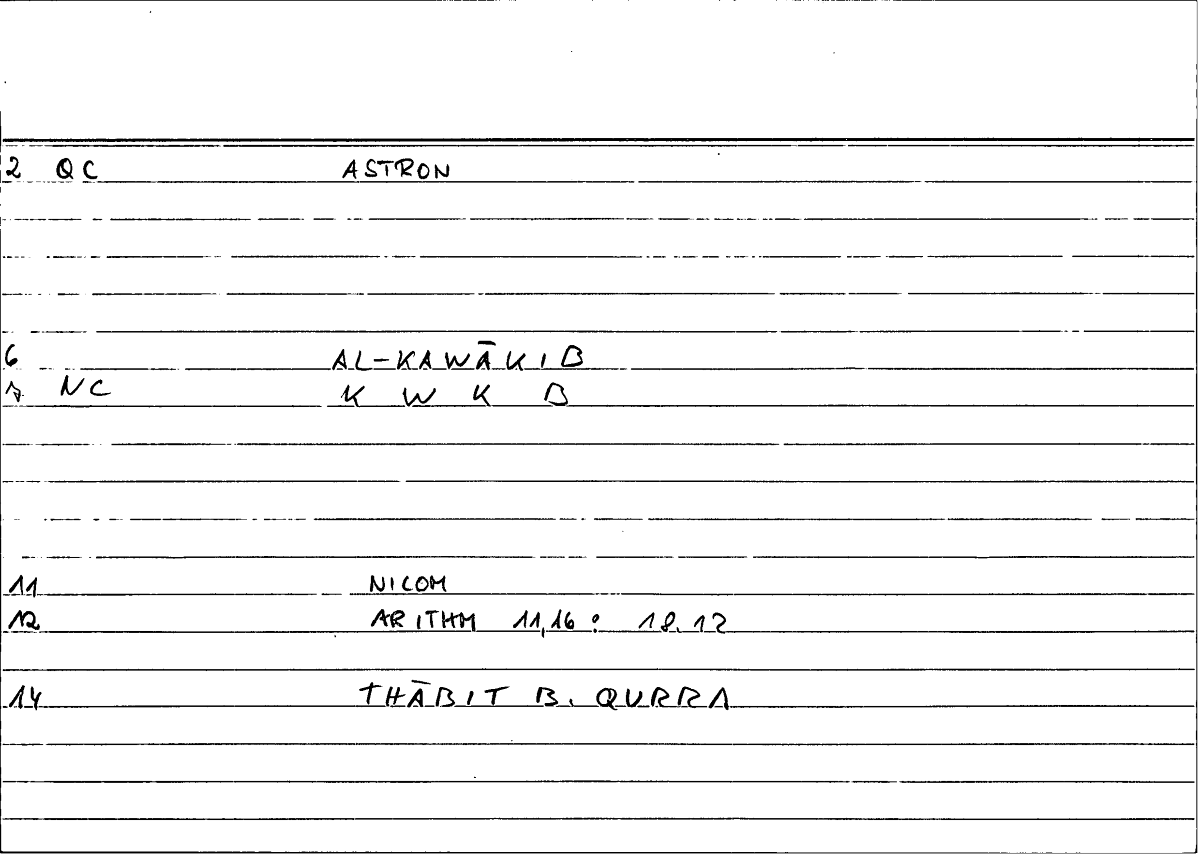 2 QC ASTRON
6 AL-KAWĀKIB
7 NC K W K B
11 NICOM
12 ARITHM 11,16 : 18.12
14 THĀBIT B. QURRA